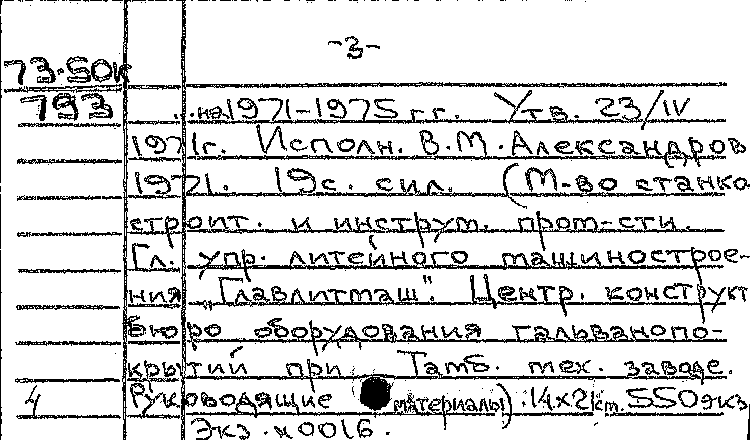 -3-
73-50к
793
...на 1971-1975 гг. Утв. 23/IV
1971г. Исполн. В.М. Александров
1971. 19с. сил. (М-во станко
строит. и инструм. пром-сти.
Гл. упр. литейного машинострое-
ния "Главлитмаш". Центр. конструкт
бюро оборудования гальванопо-
крытий при Тамб. мех. заводе.
4 Руководящие материалы). 14х21см. 550экз
Экз. №0016.